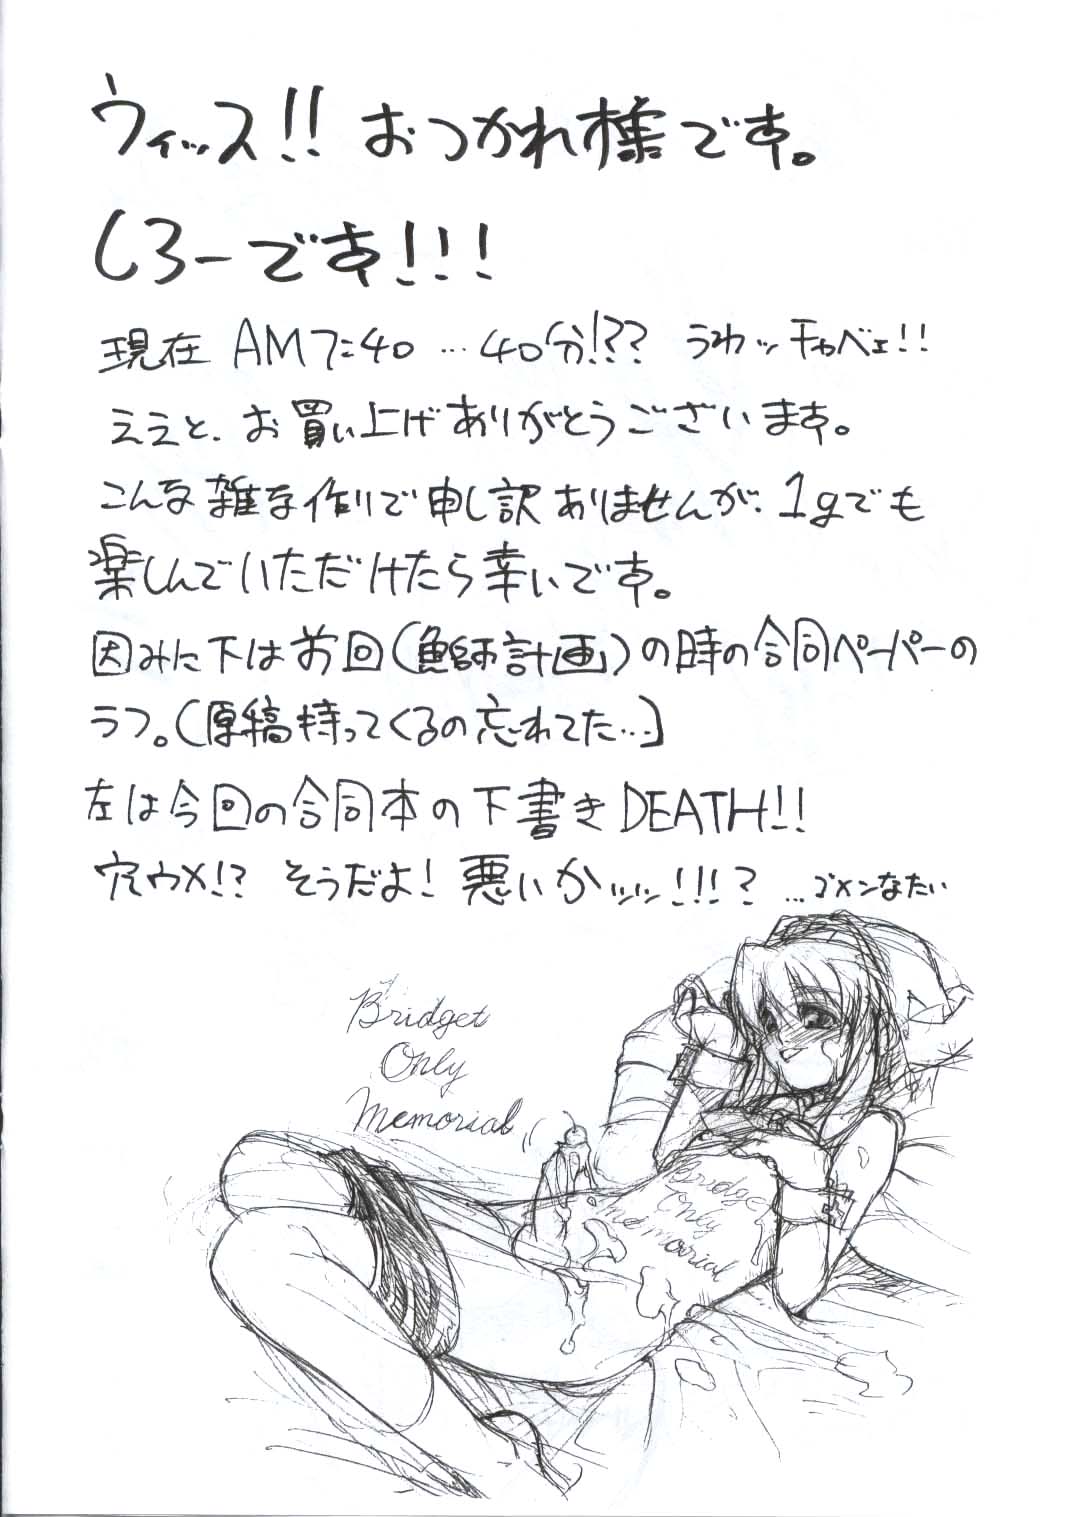 ウィッス!! おつかれ様です。
しろーです!!!
現在 AM7:40 …40分!?? うわッチャベェ!!
ええと、お買い上げありがとうございます。
こんな雑な作りで申し訳ありませんが、1gでも
楽しんでいただけたら幸いです。
因みに下は前回(鮑師計画)の時の合同ペーパーの
ラフ。(原稿持ってくるの忘れてた…)
左は今回の合同本の下書きDEATH!!
穴ウメ!? そうだよ! 悪いかッッッ!!!? …ゴメンなたい
Bridget
Only
Memorial
Bridget
Only
Memorial